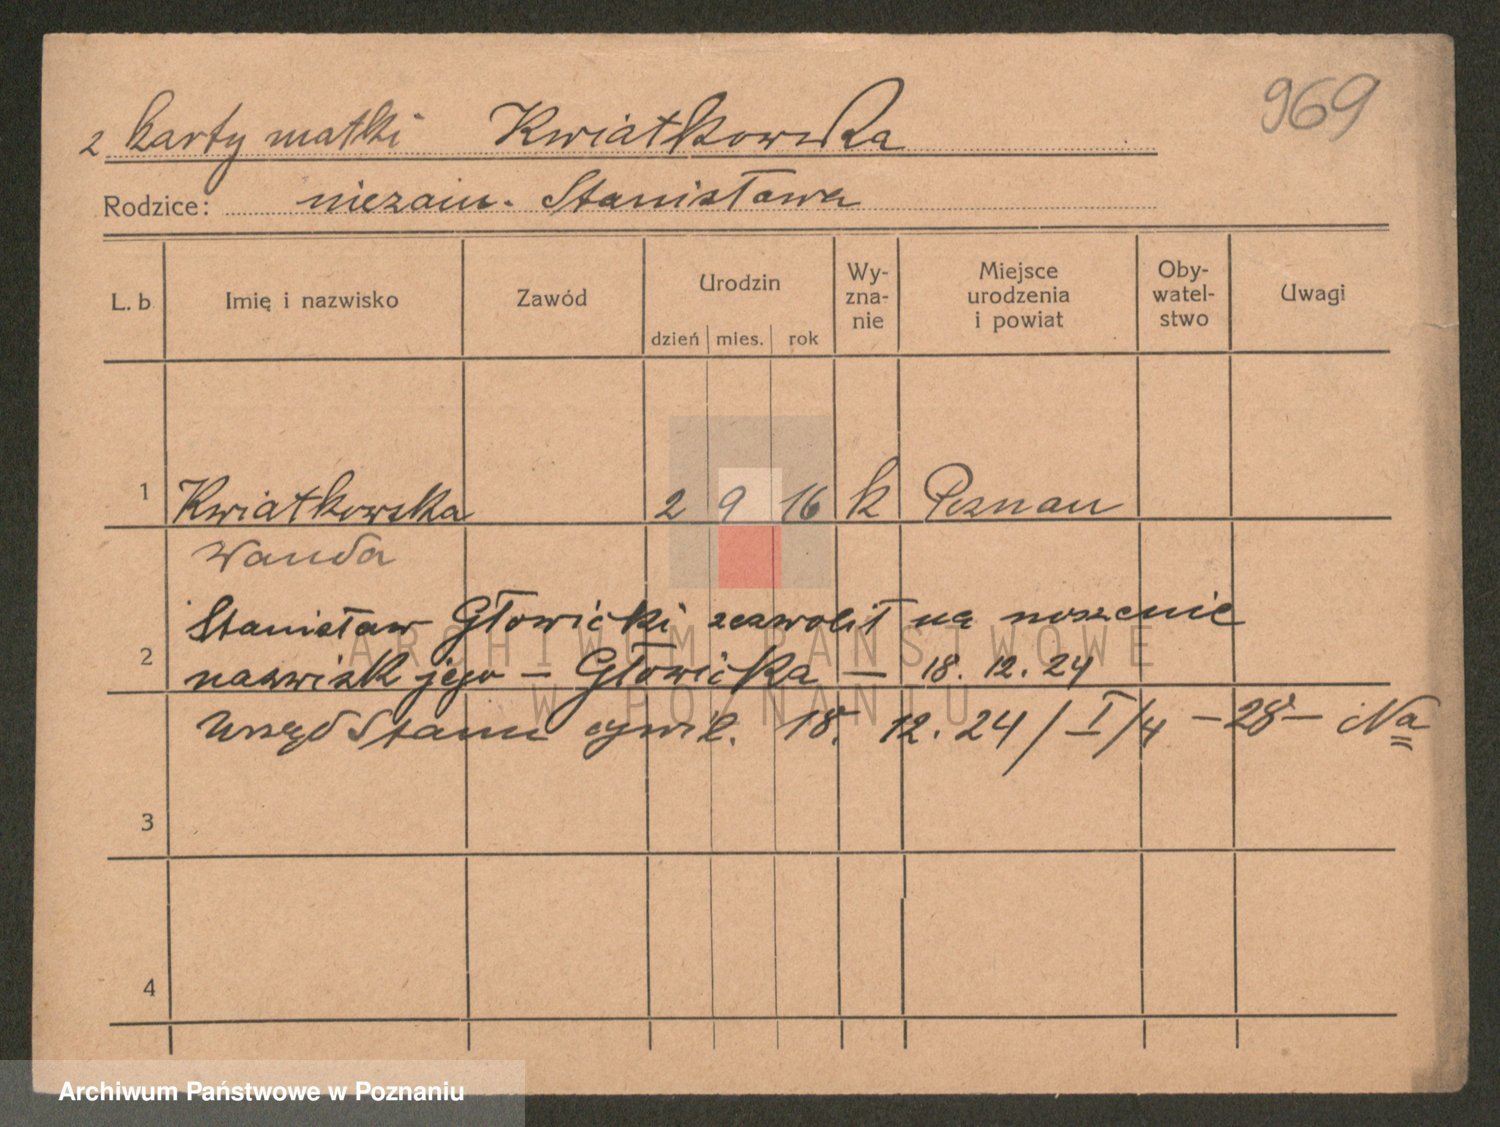 969
z karty matki Kwiatkowska
Rodzice: niezam. Stanisława
L. b. Imię i nazwisko Zawód Urodzin Wy-zna-nie Miejsce urodzenia i powiat Oby-watel-stwo Uwagi
dzień mies. rok
1 Kwiatkowska 2 9 16 k Poznań
Wanda
Stanisław Głowicki zezwolił na noszenie
2 nazwisk jego – Głowicka – 18. 12. 24
Urząd Stanu cywil. 18. 12. 24 / I / 4 – 28 – Na
3
4
ARCHIWUM PAŃSTWOWE
W POZNANIU
Archiwum Państwowe w Poznaniu